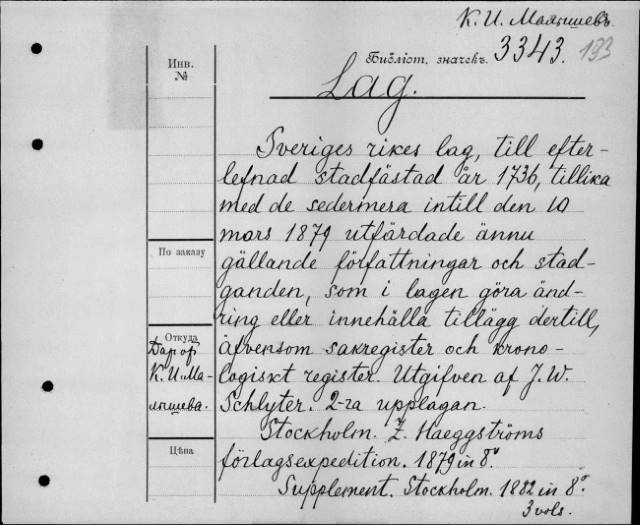 К. И. Малышевъ
Библіот. значекъ. 3343. 193
Инв.
№
Lag.
Sveriges rikes lag, till efter-
lefnad stadfästad år 1736, tillika
med de sedermera intill den 10
mars 1879 utfärdade ännu
По заказу
gällande författningar och stad-
ganden, som i lagen göra änd-
ring eller innehålla tillägg dertill,
Откуда
Дар от
К. И. Ма-
лышева.
äfvensom sakregister och krono-
logiskt register. Utgifven af J. W.
Schlyter. 2-ra upplagan.
Stockholm. Z. Haeggströms
Цѣна
förlagsexpedition. 1879 in 8°
Supplement. Stockholm. 1882 in 8°.
3 vols.